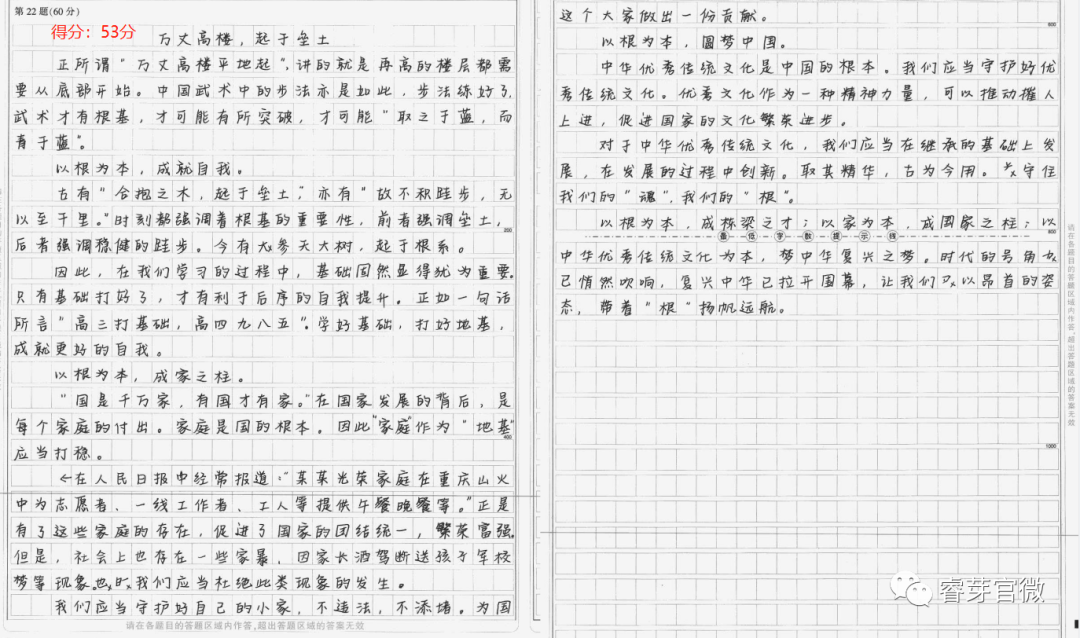 第22题(60分)
得分：53分
万丈高楼，起于垒土
正所谓“万丈高楼平地起”，讲的就是再高的楼层都需
要从底部开始。中国武术中的步法亦是如此，步法练好了，
武术才有根基，才可能有所突破，才可能“取之于蓝，而
青于蓝”。
以根为本，成就自我。
古有“合抱之木，起于垒土”，亦有“故不积跬步，无
以至千里。”时刻都强调着根基的重要性，前者强调垒土，
后者强调稳健的跬步。今有参天大树，起于根系。
因此，在我们学习的过程中，基础固然显得尤为重要。
只有基础打好了，才有利于后序的自我提升。正如一句话
所言“高三打基础，高四九八五”。学好基础，打好地基，
成就更好的自我。
以根为本，成家之柱。
“国是千万家，有国才有家。”在国家发展的背后，是
每个家庭的付出。家庭是国的根本。因此“家庭”作为“地基”
400
应当打稳。
在人民日报中经常报道：“某某光荣家庭在重庆山火
中为志愿者、一线工作者、工人等提供午餐晚餐等。”正是
有了这些家庭的存在，促进了国家的团结统一，繁荣富强。
但是，社会上也存在一些家暴、因家长酒驾断送孩子军校
梦等现象。我们应当杜绝此类现象的发生。
我们应当守护好自己的小家，不违法，不添堵。为国
请在各题目的答题区域内作答，超出答题区域的答案无效
这个大家做出一份贡献。
600
以根为本，圆梦中国。
中华优秀传统文化是中国的根本。我们应当守护好优
秀传统文化。优秀文化作为一种精神力量，可以推动摧人
上进，促进国家的文化繁荣进步。
对于中华优秀传统文化，我们应当在继承的基础上发
展，在发展的过程中创新。取其精华，古为今用。守住
我们的“魂”，我们的“根”。
以根为本，成栋梁之才；以家为本，成国家之柱；以
800
最低字数提示线
中华优秀传统文化为本，梦中华复兴之梦。时代的号角
已悄然吹响，复兴中华已拉开围幕，让我们以昂首的姿
态，带着“根”扬帆远航。
1000
请在各题目的答题区域内作答，超出答题区域的答案无效
睿芽官微